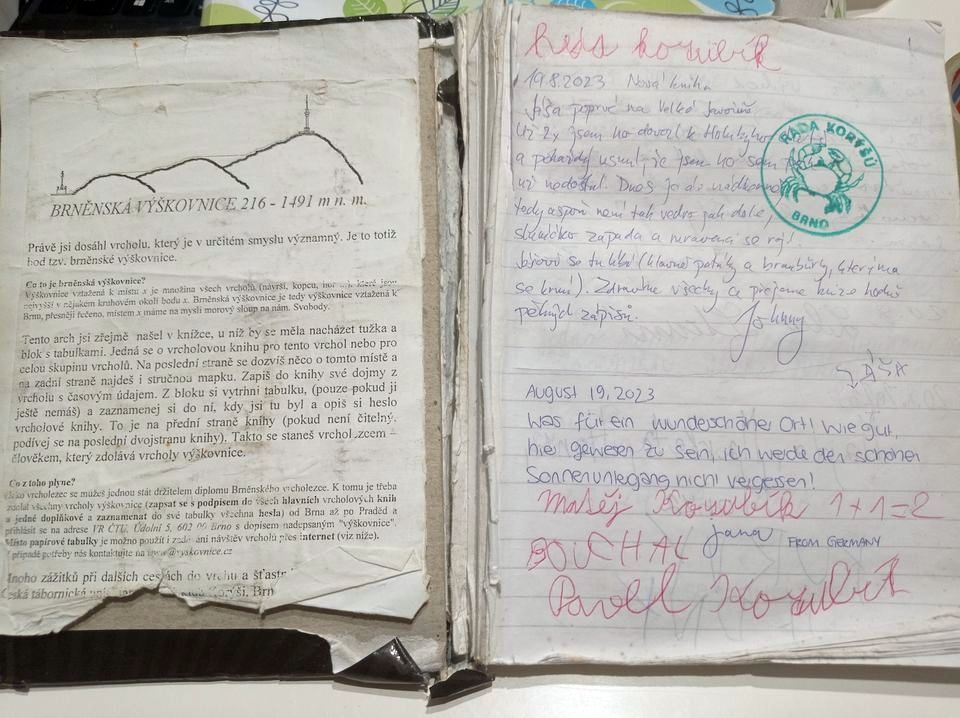 BRNĚNSKÁ VÝŠKOVNICE 216 - 1491 m n. m.
Právě jsi dosáhl vrcholu, který je v určitém smyslu významný. Je to totiž
bod tzv. brněnské výškovnice.
Co to je brněnská výškovnice?
Výškovnice vztažená k místu x je množina všech vrcholů (návrší, kopců, hor
nejvyšší v nějakém kruhovém okolí bodu x. Brněnská výškovnice je tedy výškovnice vztažená k
Brnu, přesněji řečeno, místem x máme na mysli morový sloup na nám. Svobody.
Tento arch jsi zřejmě našel v knížce, u níž by se měla nacházet tužka a
blok s tabulkami. Jedná se o vrcholovou knihu pro tento vrchol nebo pro
celou skupinu vrcholů. Na poslední straně se dozvíš něco o tomto místě a
na zadní straně najdeš i stručnou mapku. Zapiš do knihy své dojmy z
vrcholu s časovým údajem. Z bloku si vytrhni tabulku, (pouze pokud ji
ještě nemáš) a zaznamenej si do ní, kdy jsi tu byl a opiš si heslo
vrcholové knihy. To je na přední straně knihy (pokud není čitelný,
podívej se na poslední dvojstranu knihy). Takto se staneš vrcholezcem –
člověkem, který zdolává vrcholy výškovnice.
Co z toho plyne?
Jako vrcholezec se můžeš jednou stát držitelem diplomu Brněnského vrcholezce. K tomu je třeba
zdolat všechny vrcholy výškovnice (zapsat se s podpisem do všech hlavních vrcholových knih
a jedné doplňkové a zaznamenat do své tabulky všechna hesla) od Brna až po Praděd a
přihlásit se na adrese VR ČTU, Údolní 5, 602 00 Brno s dopisem nadepsaným "výškovnice".
Místo papírové tabulky je možno použít i zadávání návštěv vrcholů přes internet (viz níže).
V případě potřeby nás kontaktujte na www@vyskovnice.cz
Mnoho zážitků při dalších cestách do vrchu a šťastn
Česká tábornická unie Rada Korýšů, Brn
19.8.2023 Nová kniha
Jáša poprvé na Velké Javořině
Už 2x jsem ho dovezl k Holubyho
a pokaždý usnul, že jsem ho sem
už nedostal. Dnes je
tedy aspoň není tak vedro jak dole,
sluníčko zapadá a
se tu líbí (hlavně a brambůrky, kterýma
se krmí). Zdravíme všechny a přejeme knize hodně
pěkných zápisů. Johnny
JÁŠA
RADA KORÝŠŮ
BRNO
August 19, 2023
Was für ein wunderschöner Ort! Wie gut,
hier gewesen zu sein, ich werde den schönen
Sonnenuntergang nicht vergessen!
Matěj Kozubík 1+1=2
BOUCHAL Jana FROM GERMANY
Pavel Kozubík